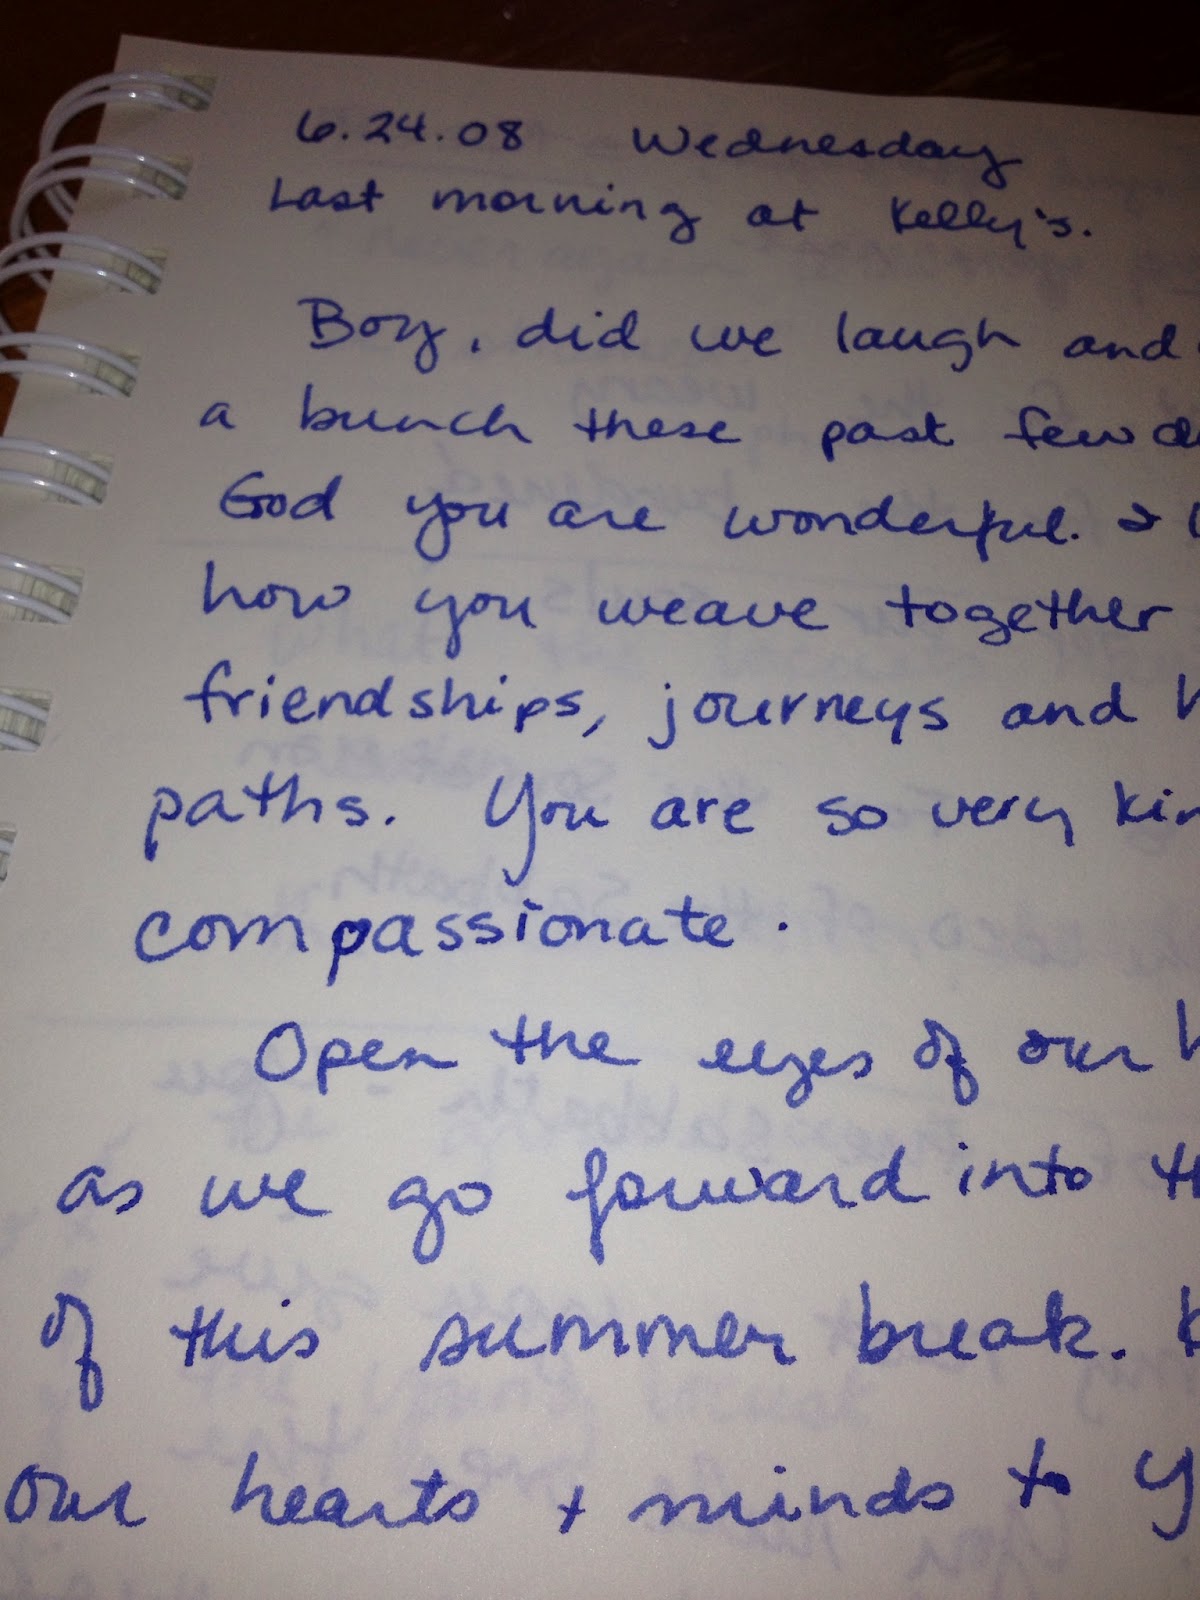 6.24.08 Wednesday
Last morning at Kelly's.
Boy, did we laugh and
a bunch these past few
God you are wonderful. I
how you weave together
friendships, journeys and
paths. You are so very
compassionate.
Open the eyes of our
as we go forward into
of this summer break.
our hearts + minds to